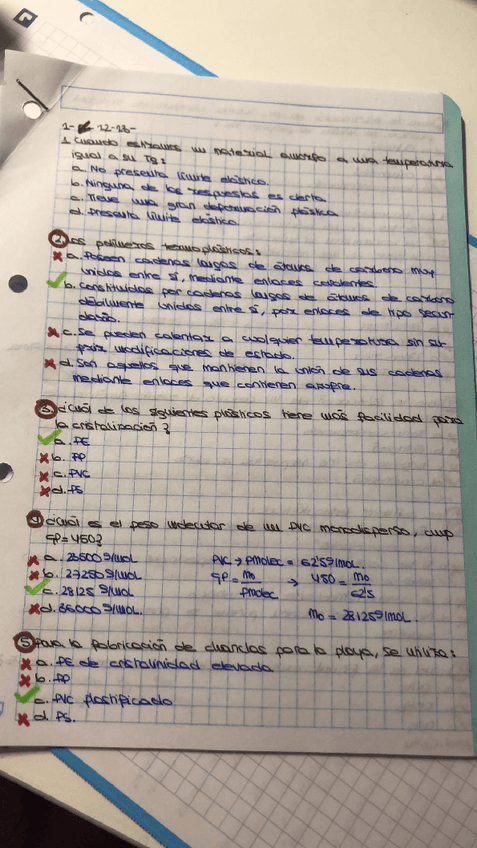 1- 22-23-
1. Cuando estiramos un material amorfo a una temperatura
igual a su Tg:
a. No presenta límite elástico.
b. Ninguna de las respuestas es cierta
c. Tiene una gran deformación plástica
d. Presenta límite elástico.
2. Los polímeros termoplásticos:
a. Poseen cadenas largas de átomos de carbono muy
unidos entre sí, mediante enlaces covalentes.
b. Constituidos por cadenas largas de átomos de carbono
débilmente unidos entre sí, por enlaces de tipo secun-
dario.
c. Se pueden calentar a cualquier temperatura sin su-
frir modificaciones de estado.
d. Son aquellos que mantienen la unión de sus cadenas
mediante enlaces que contienen azufre.
3. ¿Cuál de los siguientes plásticos tiene más facilidad para
la cristalización?
a. PE
b. PP
c. PVC
d. PS
4. ¿Cuál es el peso molecular de un PVC monodisperso, cuyo
GP=450?
a. 23500 g/mol
b. 27250 g/mol
c. 28125 g/mol
d. 36000 g/mol.
PVC → PMolec = 62'5 g/mol.
GP = Mo / PMolec → 450 = Mo / 62'5
Mo = 28125 g/mol.
5. Para la fabricación de chanclas para la playa, se utiliza:
a. PE de cristalinidad elevada
b. PP
c. PVC plastificado
d. PS.